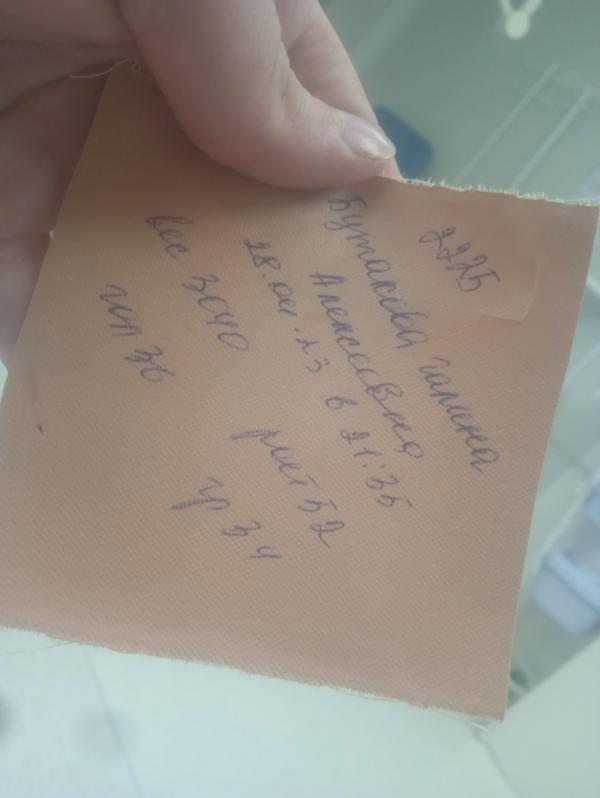 2225
Бутакова Галина
Алексеевна
28.04.23 в 21:35
вес 3040 рост 52
гол 36 гр 34